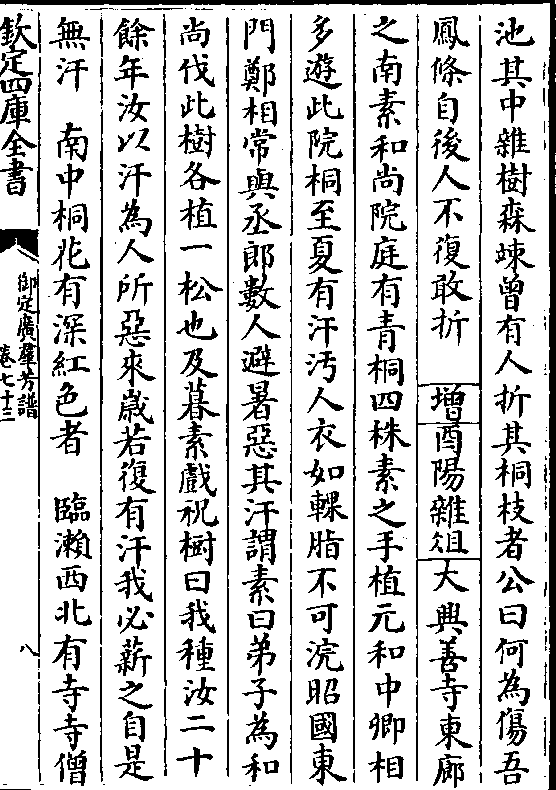 池其中雜樹森竦曾有人折其桐枝者公曰何為傷吾
鳳條自後人不復敢折 增酉陽雜俎 大興善寺東廊
之南素和尚院庭有青桐四株素之手植元和中卿相
多遊此院桐至夏有汗汚人衣如輠脂不可浣昭國東
門鄭相常與丞郎數人避暑惡其汗謂素曰弟子為和
尚伐此樹各植一松也及暮素戲祝樹曰我種汝二十
餘年汝以汗為人所惡來嵗若復有汗我必薪之自是
無汗 南中桐花有深紅色者 臨瀨西北有寺寺僧
欽定四庫全書
御定廣羣芳譜
卷七十三
八